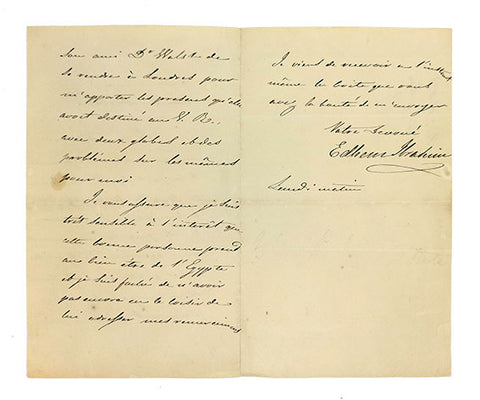 son ami Dr Walsh de
se rendre à Londres pour
m'apporter les présens qu'elle
avoit destiné au V. R.
avec deux globes et des
problémes sur les mêmes
pour moi
Je vous assure que je suis
très sensible à l'interêt que
cette bonne personne prend
au bien être de l'Egypte
et je suis faché de n'avoir
pas encore eu le loisir de
lui adresser mes remercimens
Je viens de recevoir à l'instant
même la boite que vous
avez la bonté de m'envoyer
Votre Devoué
Edhem Ibrahim
Lundi matin